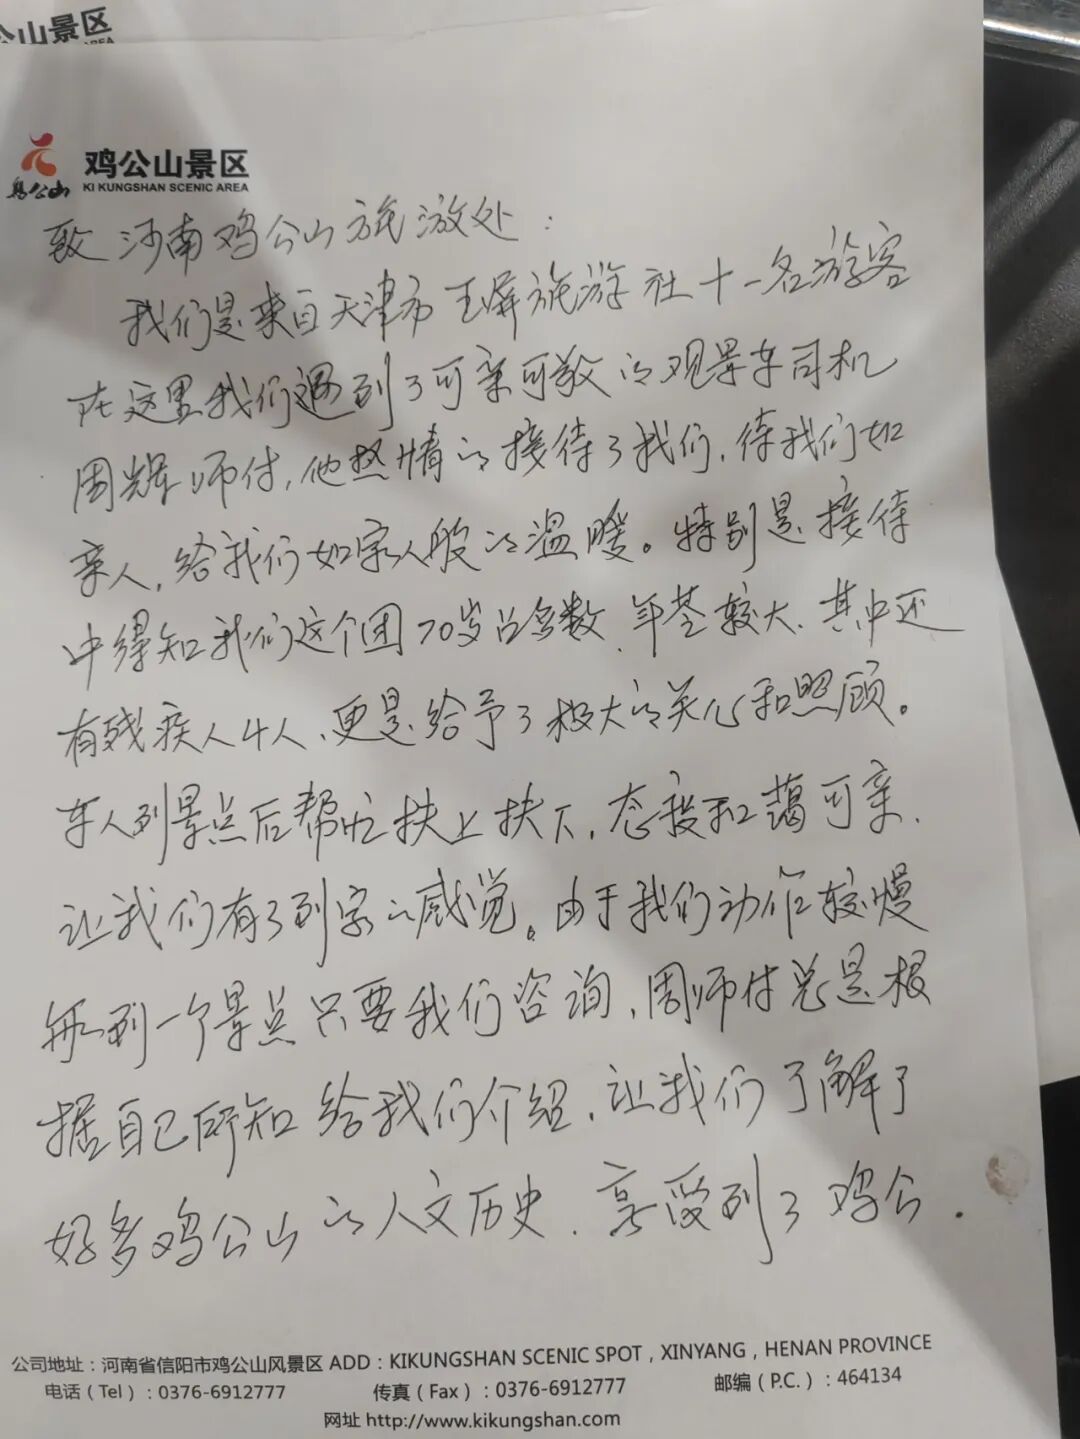 公山景区
AREA
鸡公山
鸡公山景区
KI KUNGSHAN SCENIC AREA
致河南鸡公山旅游处：
我们是来自天津市王屏旅游社十一名游客
在这里我们遇到了可亲可敬的观景车司机
周辉师付，他热情的接待了我们，待我们如
亲人，给我们如家人般的温暖。特别是接待
中得知我们这个团70岁占多数、年基较大、其中还
有残疾人4人、更是给予了极大的关心和照顾。
车人到景点后帮忙扶上扶下，态度和蔼可亲、
让我们有了到家的感觉。由于我们动作较慢
每到一个景点只要我们咨询，周师付总是根
据自己所知给我们介绍，让我们了解了
好多鸡公山的人文历史、享受到了鸡公.
公司地址：河南省信阳市鸡公山风景区 ADD：KIKUNGSHAN SCENIC SPOT，XINYANG，HENAN PROVINCE
电话（Tel）：0376-6912777 传真（Fax）：0376-6912777 邮编（P.C.）：464134
网址 http://www.kikungshan.com